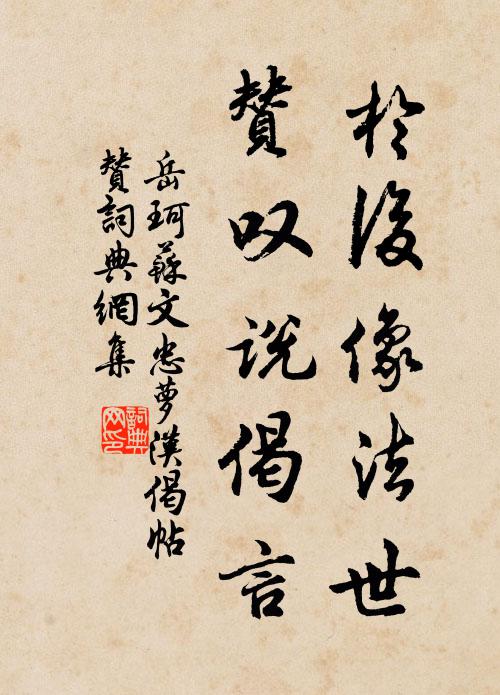 於後像法世
賛叹説偈言
岳珂蘇文忠夢漢偈帖
賛詞典網集
詞典网印